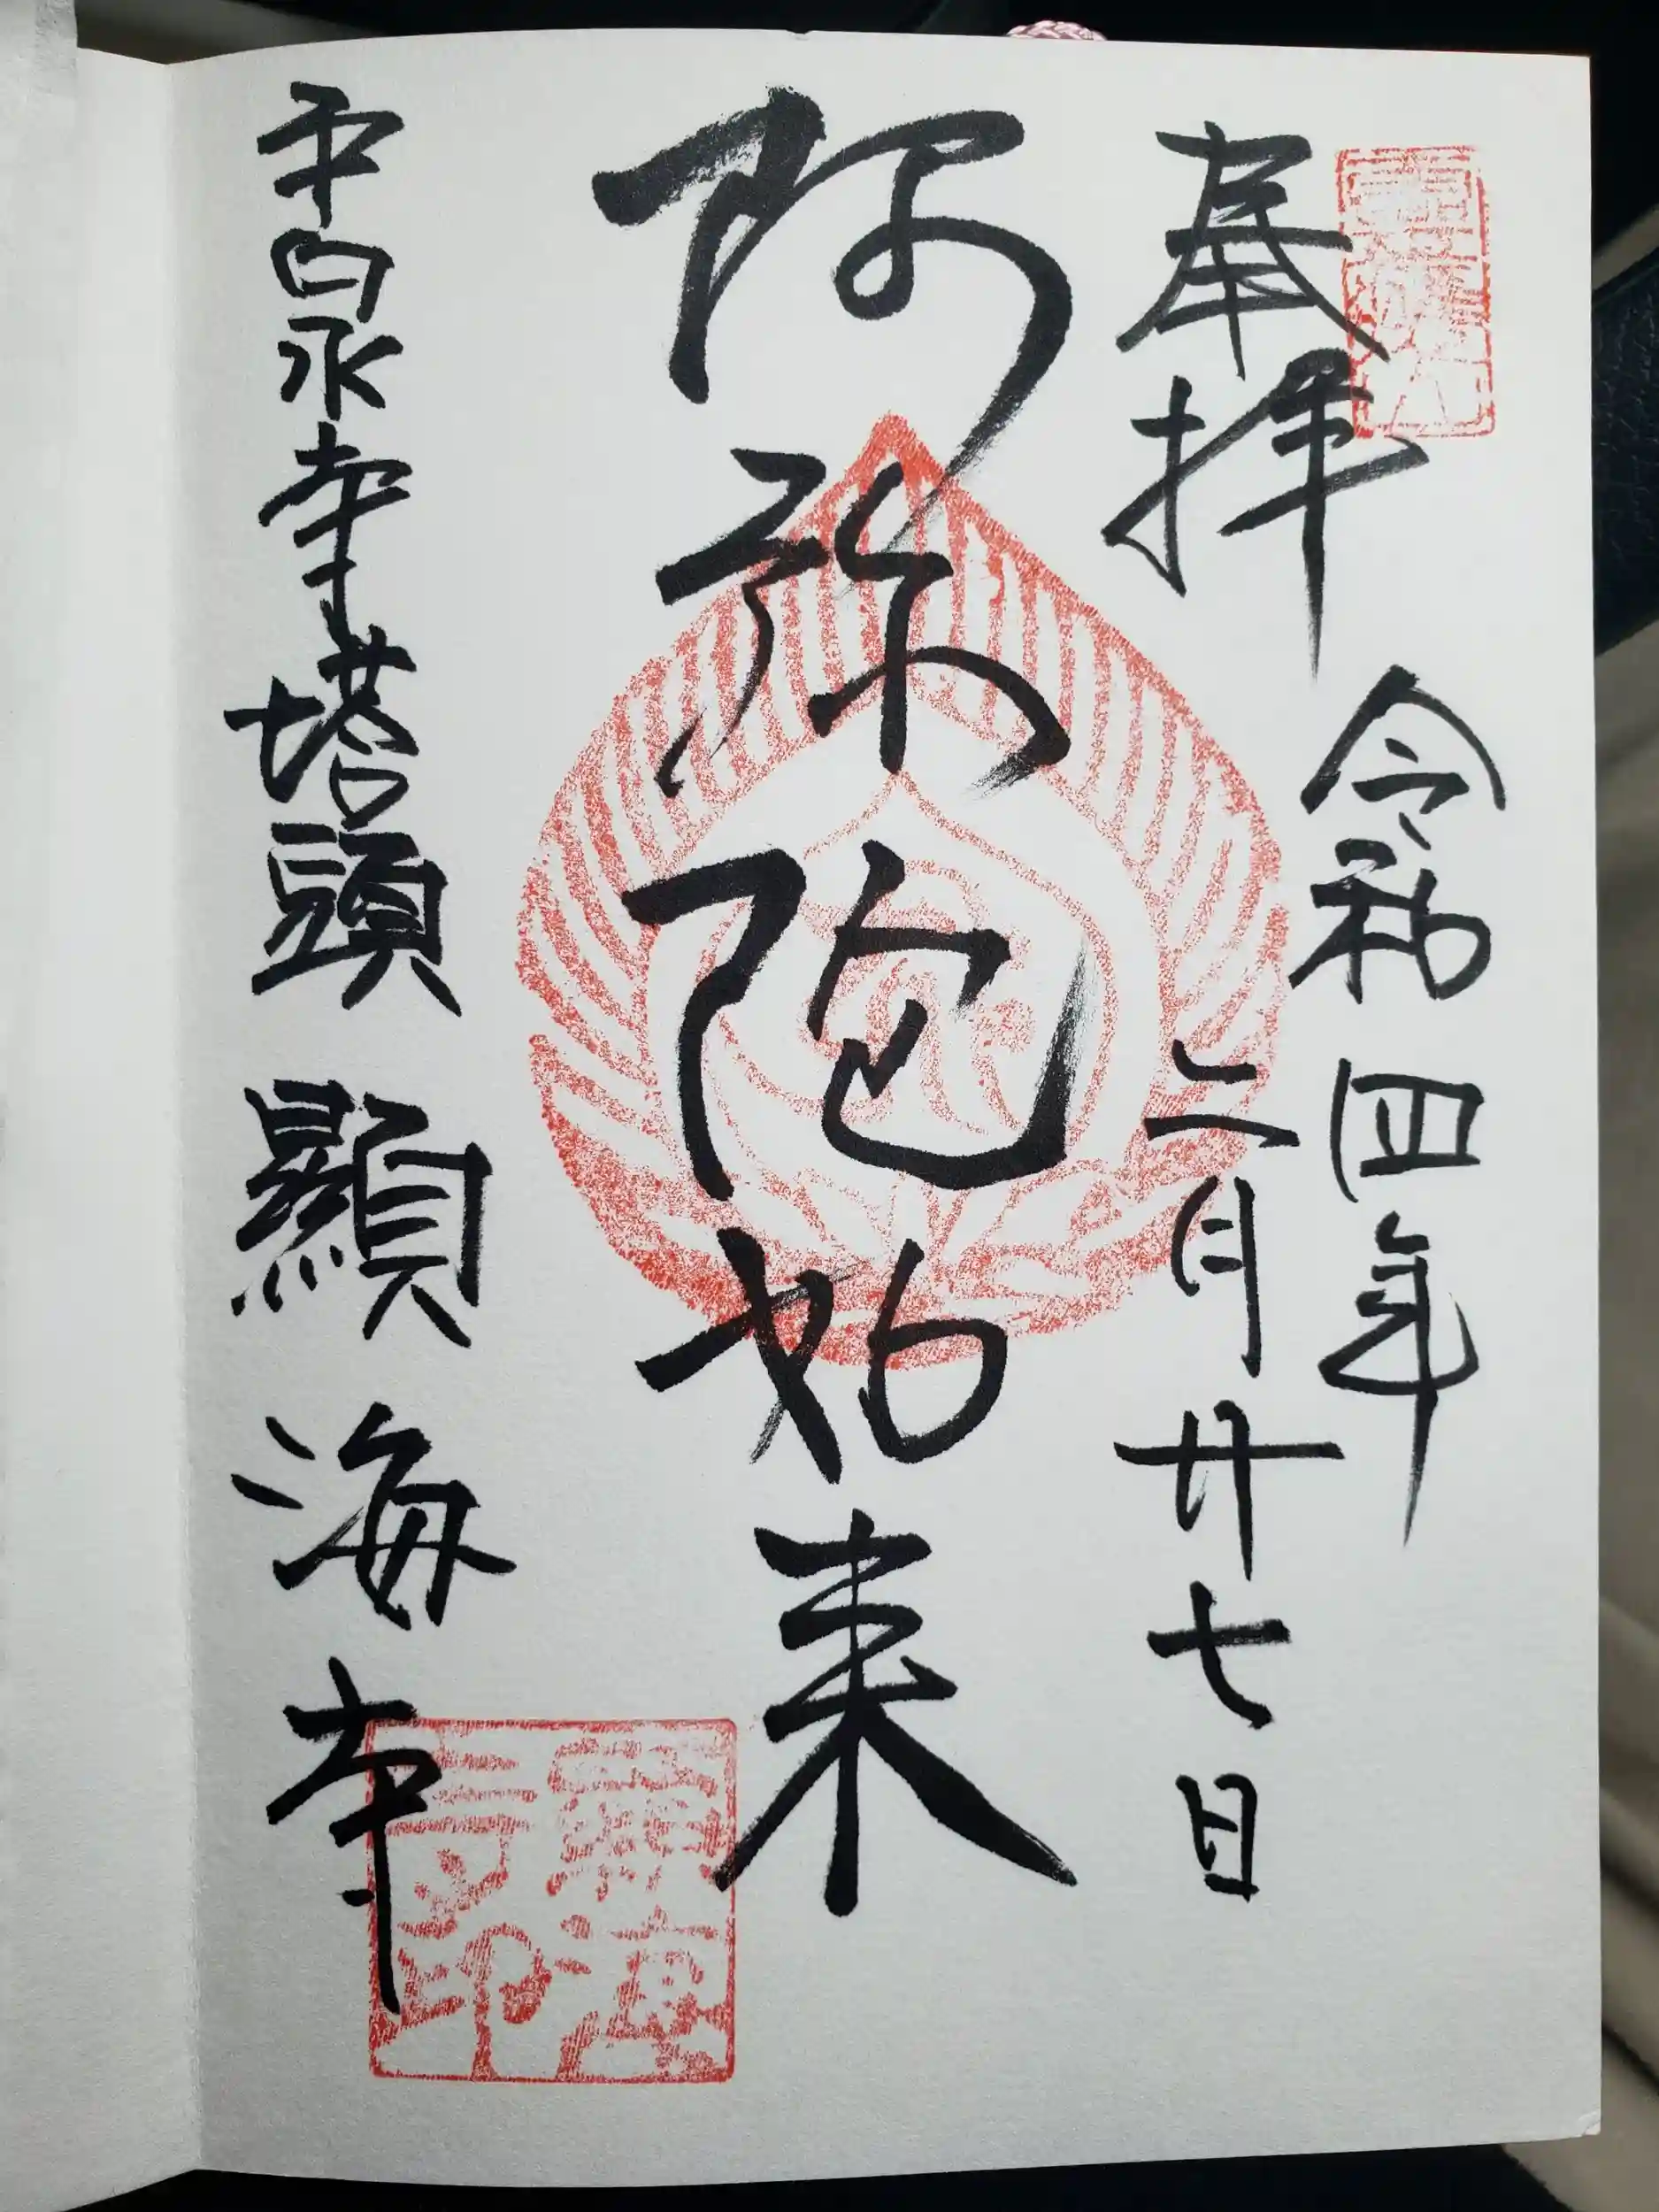 奉拝
令和四年
二月廿七日
阿弥陀如来
平泉寺塔頭 顯海寺
顯海
寺印